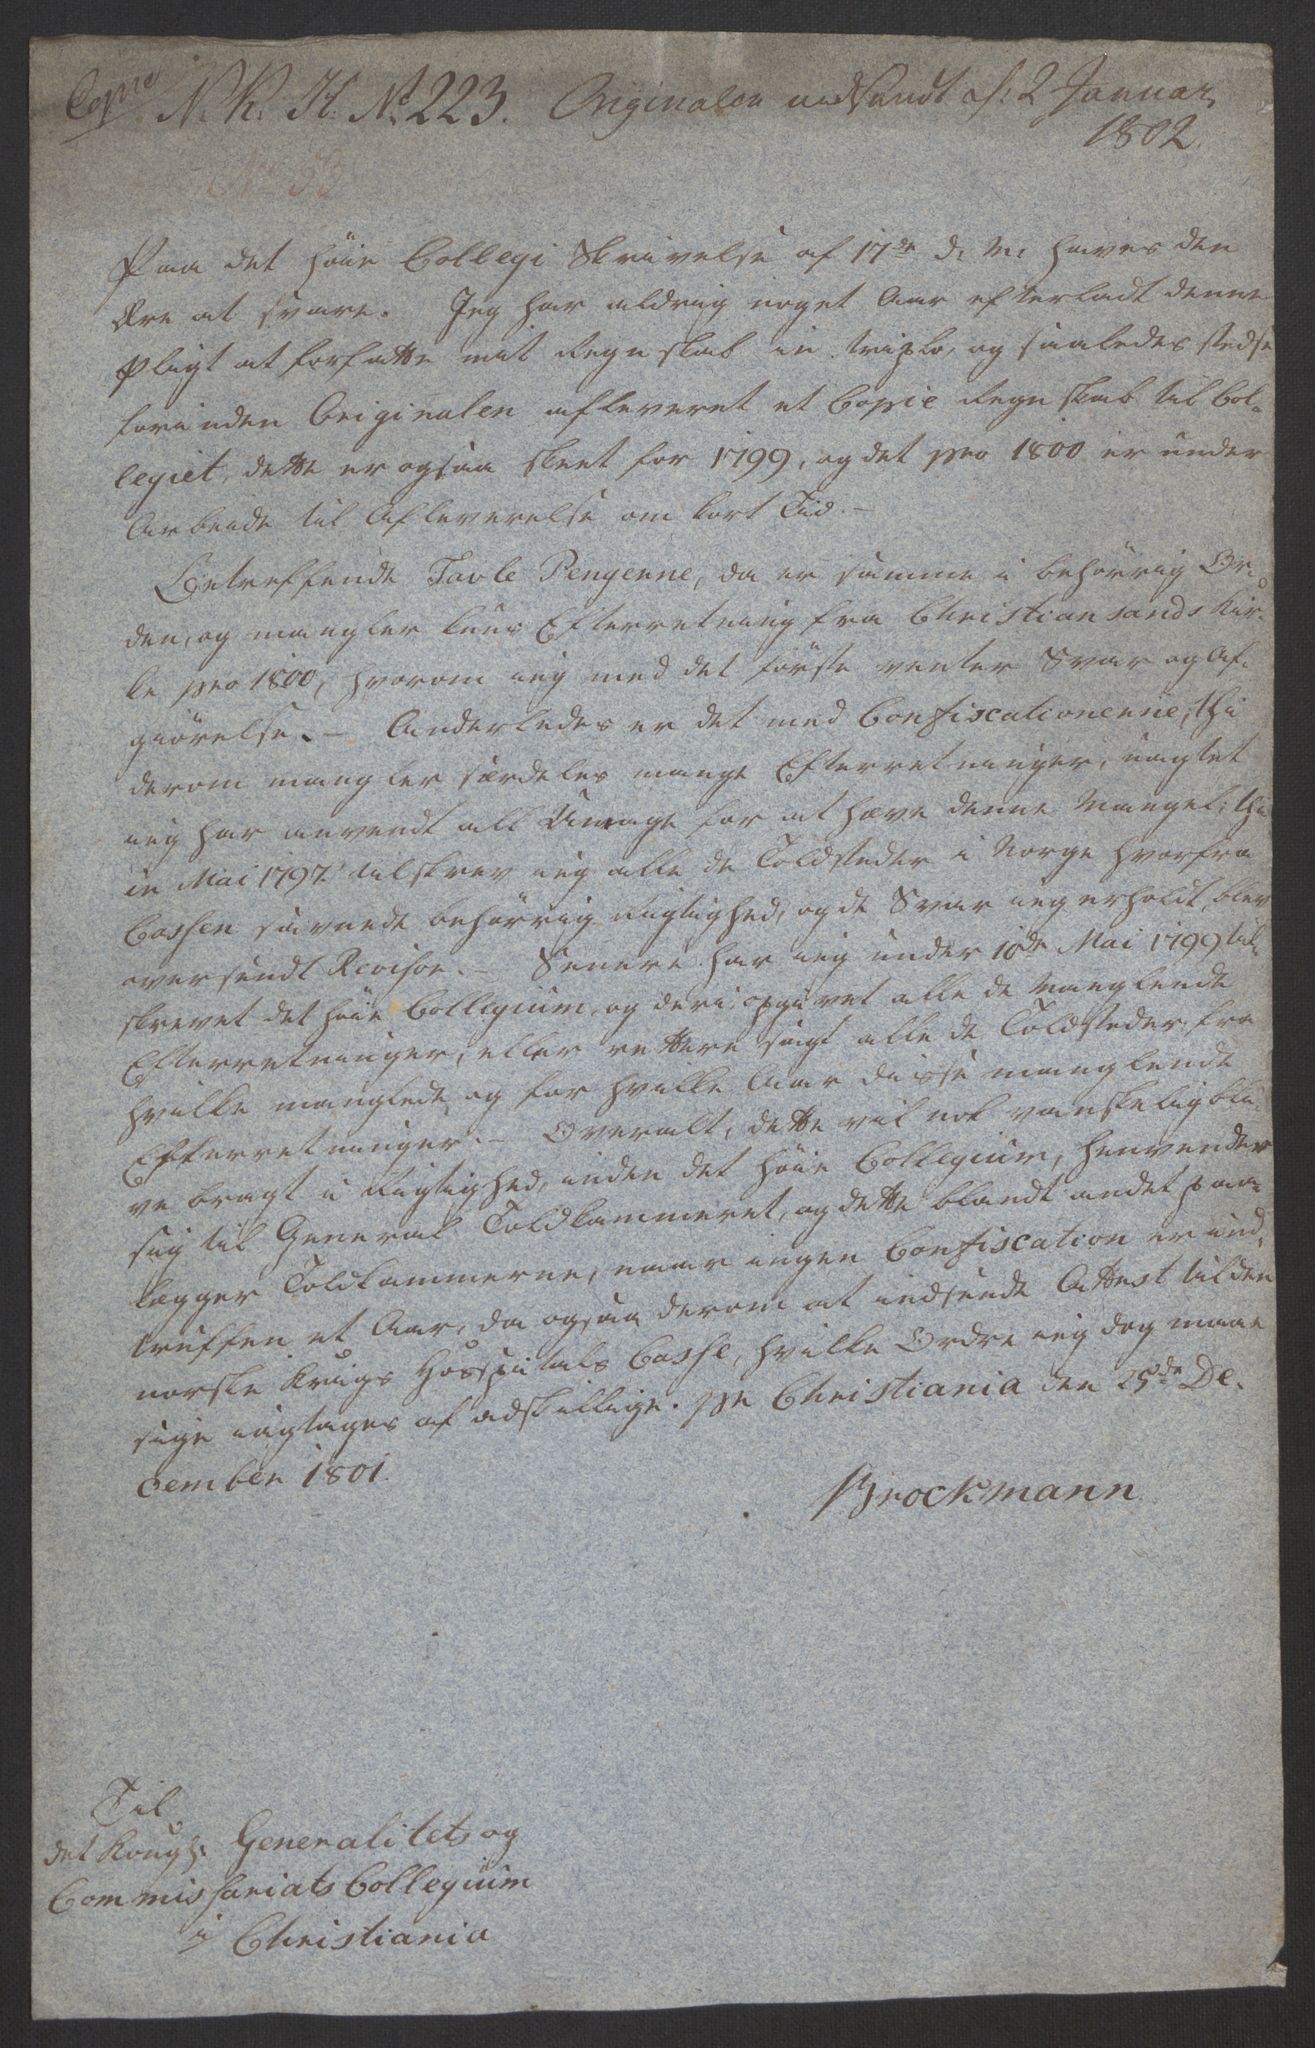 Copie N. K. H. No 223. Originalen indsendt d: 2 Januar
1802.
No 33
Paa det høie Collegi Skrivelse af 17de d. M. haves den
Ære at svare. Jeg har aldrig noget Aar efterladt denne
Pligt at forfatte mit Regnskab in triplo, og saaledes stedse
foruden Originalen afleveret et Copie Regnskab til Col-
legiet, dette er ogsaa skeet for 1799, og det pro 1800 er under
Arbeide til Afleverelse om kort Tid. –
Betreffende Tavle Pengenne, da er samme i behørig Or-
den, og mangler kuns Efterretning fra Christiansands Kir-
ke pro 1800, hvorom jeg med det første venter Svar og Af-
giørelse. – Anderledes er det med Confiscationerne, thi
derom mangler særdeles mange Efterretninger, uagtet
jeg har anvendt all Umage for at hæve denne Mangel; thi
in Mai 1797 tilskrev jeg alle de Toldsteder i Norge hvorfra
Cassen savnede behørig Rigtighed, og de Svar jeg erholdt, blev
oversendt Revisor. – Senere har jeg under 10de Mai 1799 til-
skrevet det høie Collegium, og deri opgivet alle de Manglende
Efterretninger, eller rettere sagt alle de Toldsteder, fra
hvilke manglede og for hvilke Aar disse manglende
Efterretninger. – Overalt, dette vil nok vanskelig bli-
ve bragt i Rigtighed, inden det høie Collegium, henvender
sig til General Toldkammeret, og dette blandt andet paa-
lægger Toldkammerne, naar ingen Confiscation er ind-
truffen et Aar, da ogsaa derom at indsende Attest til den
norske Krigs Hospitals Casse, hvilke Ordre jeg dog maae
sige iagtages af adskillige. pr Christiania den 25de De-
cember 1801.
Brockmann
Til
det Kongl: Generalitets og
Commissariats Collegium
i Christiania